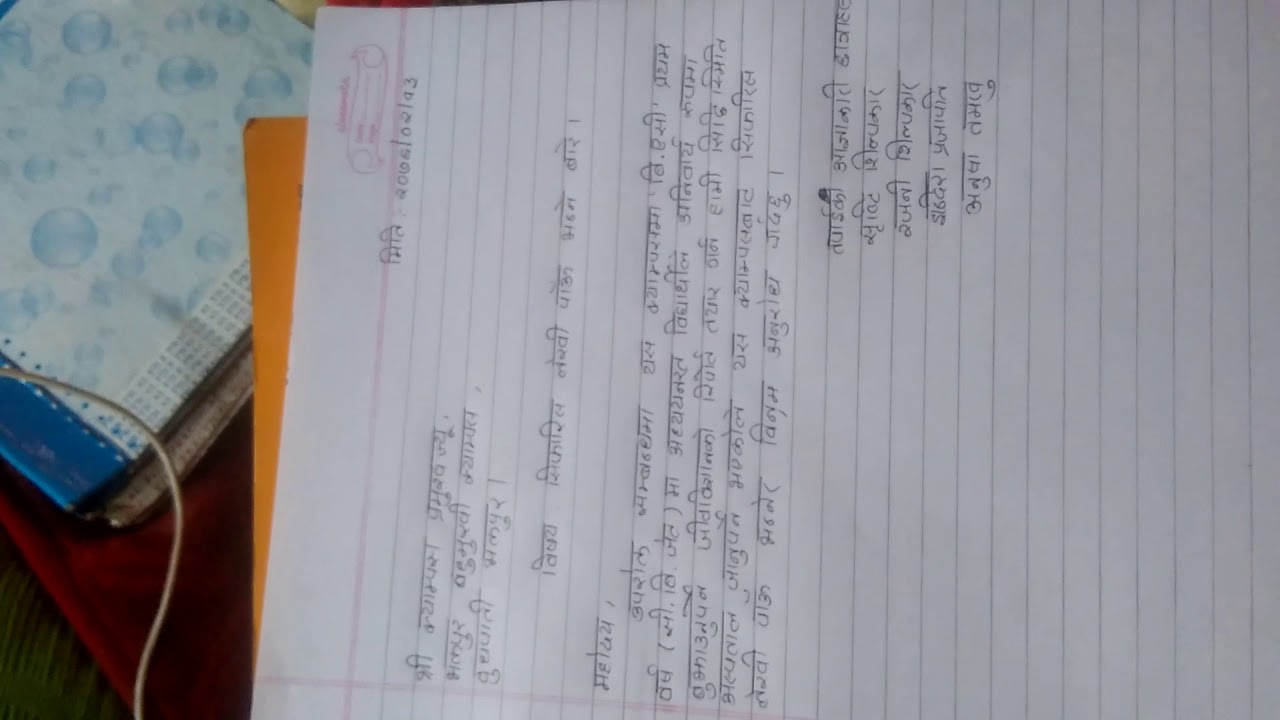 मिति : २०७६/०२/१३
श्री क्याम्पस प्रमुखज्यू,
भक्तपुर बहुमुखी क्याम्पस,
दुधपाटी भक्तपुर ।
विषय सिफारिस लेखी पाँऊ भन्ने बारे ।
महोदय,
उपरोक्त सम्बन्धमा यस क्याम्पसमा बि.एसी. प्रथम
वर्ष (सी. बि. जेट) मा अध्ययनरत विद्यार्थीले अनिवार्य रुपमा
बुझाउनुपर्ने जीवविज्ञानको रिपोर्ट तयार गर्न हामी सिद्धि स्मृति
अस्पताल जानुपर्ने भएकोले यस क्याम्पसबाट सिफारिस
लेखी पाऊ भनेर विनम्र अनुरोध गर्दछु ।
तपाईको आज्ञाकारी
सृष्टि शिल्पकार
रोजनी शिल्पकार
प्रजापति
अनुपा तमाखु